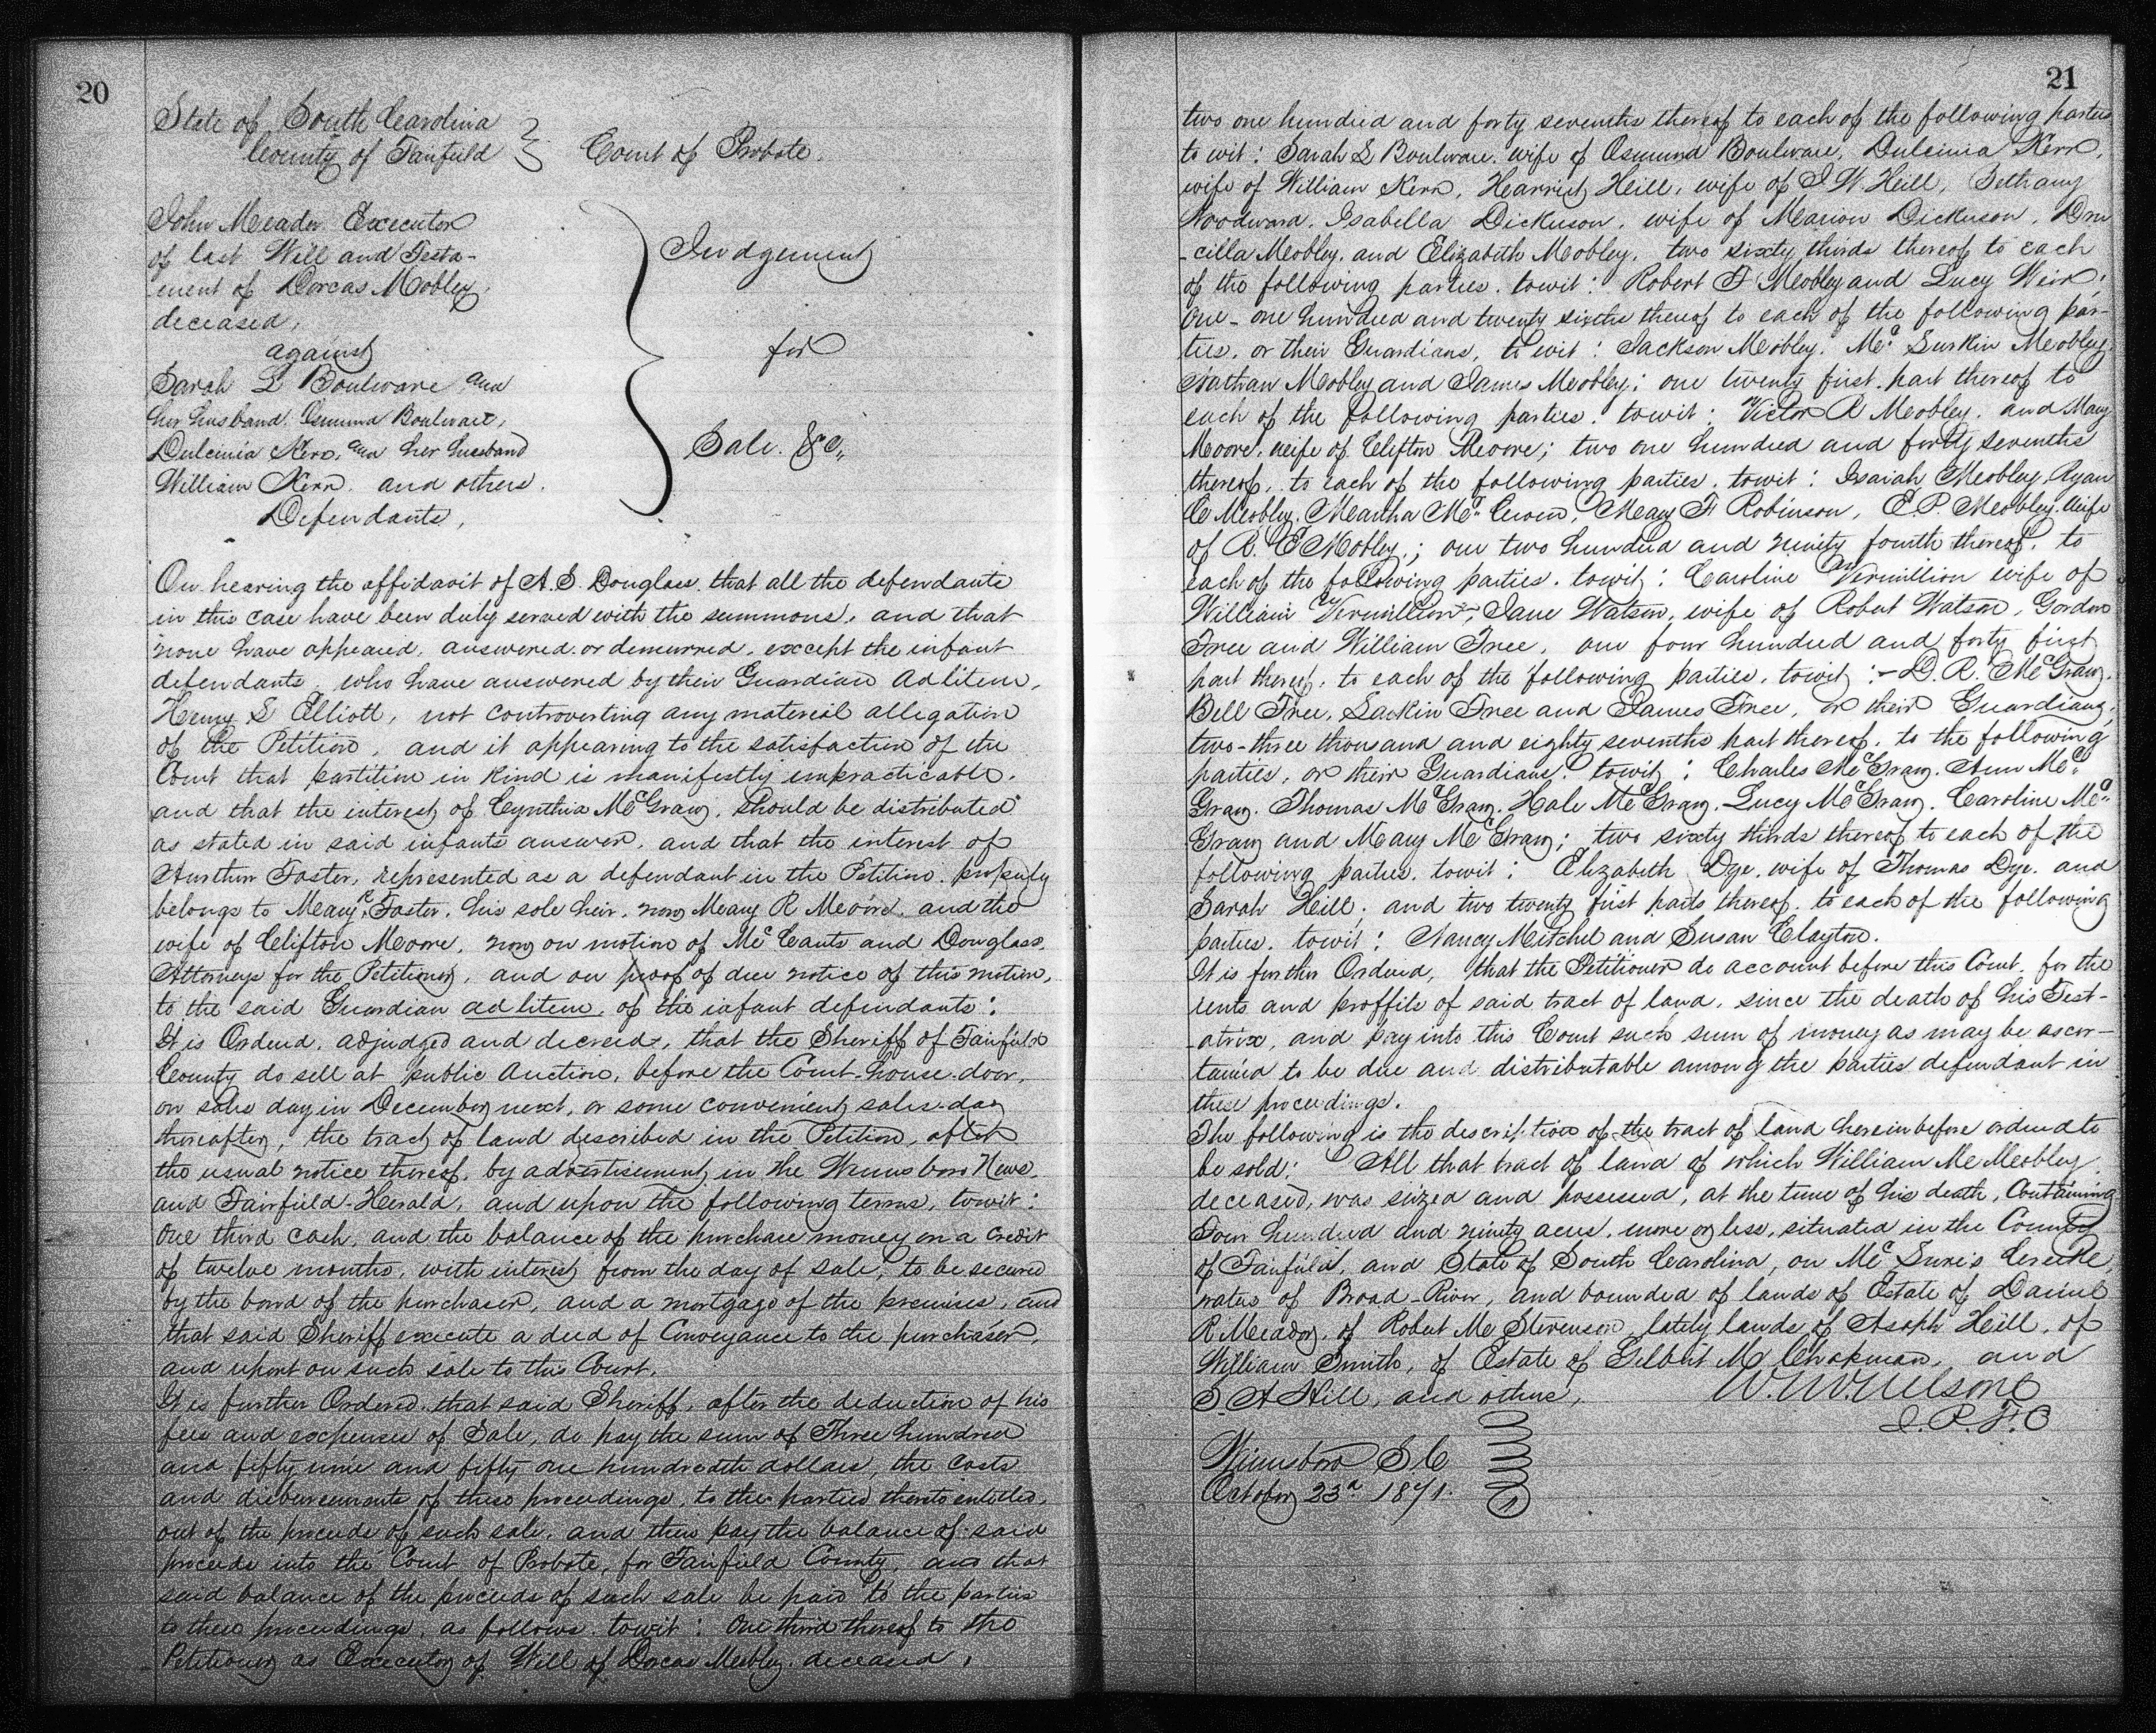 20
State of South Carolina
County of Fairfield
Court of Probate.
John Meador Executor
of last Will and Testa-
ment of Dorcas Mobley,
deceased,
against
Sarah L Boulware and
her husband Osmund Boulware,
Dulcinia Kerr, and her husband
William Kerr. and others.
Defendants,
Judgement
for
Sale. &c,,
On hearing the affidavit of A. S. Douglass. that all the defendants
in this case have been duly served with the summons, and that
none have appeared, answered or demurred, except the infant
defendants, who have answered by their Guardian Ad litem,
Henry S Elliott, not controverting any material allegation
of the Petition, and it appearing to the satisfaction of the
Court that partition in kind is manifestly impracticable.
and that the interest of Cynthia McGraw, should be distributed
as stated in said infants answer, and that the interest of
Foster, represented as a defendant in the Petition. properly
belongs to Mary R Foster, his sole heir, now Mary R Moore, and the
wife of Clifton Moore, now on motion of McCants and Douglass,
Attorneys for the Petitioner, and on proof of due notice of this motion,
to the said Guardian ad litem, of the infant defendants:
It is Ordered, adjudged and decreed, that the Sheriff of Fairfield
County do sell at public Auction, before the Court-house door,
on sales day in December next, or some convenient sales-day
thereafter, the tract of land described in the Petition, after
the usual notice thereof, by advertisement in the Winnsboro News,
and Fairfield-Herald, and upon the following terms, towit:
One third cash, and the balance of the purchase money on a credit
of twelve months, with interest from the day of sale, to be secured
by the bond of the purchaser, and a mortgage of the premises, and
that said Sheriff execute a deed of Conveyance to the purchaser,
and report on such sale to this Court.
It is further Ordered, that said Sheriff, after the deduction of his
fees and expenses of Sale, do pay the sum of Three hundred
and fifty nine and fifty one hundredths dollars, the costs
and disbursements of these proceedings, to the parties thereto entitled,
out of the proceeds of such sale, and then pay the balance of said
proceeds into the Court of Probate, for Fairfield County, and that
said balance of the proceeds of such sale be paid to the parties
to these proceedings, as follows. towit: One third thereof to the
Petitioner as Executor of Will of Dorcas Mobley. deceased,
21
two one hundred and forty sevenths thereof to each of the following parties
to wit: Sarah L Boulware, wife of Osmund Boulware, Dulcinia Kerr,
wife of William Kerr, Harriet Heill, wife of J W. Heill, Bethany
Woodward, Isabella Dickerson, wife of Marion Dickerson, Dru
-cilla Mobley, and Elizabeth Mobley, two sixty thirds thereof to each
of the following parties. towit: Robert F Mobley and Lucy Weir;
One- one hundred and twenty sixths thereof to each of the following par-
ties, or their Guardians, to wit: Jackson Mobley, Mobley,
Nathan Mobley and James Mobley; one twenty first. part thereof to
each of the following parties. towit: Victor R Mobley. and Mary
Moore, wife of Clifton Moore; two one hundred and forty sevenths
thereof, to each of the following parties. towit: Isaiah Mobley, Ryan
C Mobley, Martha Mary F Robinson, E. P. Mobley. wife
of R. C Mobley,; one two hundred and ninety fourth thereof, to
each of the following parties. towit: Caroline Vermillion wife of
William Vermillion, Jane Watson, wife of Robert Watson, Gordon
Free and William Free, one four hundred and forty first
part thereof, to each of the following parties, towit:- D. R. McGraw,
Bell Free, Larkin Free and James Free, or their Guardians;
two-three thousand and eighty sevenths part thereof, to the following
parties, or their Guardians. towit: Charles McGraw. Ann Mc
Graw. Thomas McGraw. Hale McGraw. Lucy McGraw. Caroline Mc
Graw and Mary McGraw; two sixty thirds thereof to each of the
following parties. towit: Elizabeth Dye, wife of Thomas Dye, and
Sarah Heill; and two twenty first parts thereof, to each of the following
parties. towit: Nancy Mitchel and Susan Clayton.
It is further Ordered, that the Petitioner do account before this Court, for the
rents and proffits of said tract of land, since the death of his Test-
-atrix, and pay into this Court such sum of money as may be ascer-
tained to be due and distributable among the parties defendant in
these proceedings.
The following is the description of the tract of land hereinbefore ordered to
be sold: All that tract of land of which William M Mobley
deceased, was siezed and possessed, at the time of his death, Containing
Four hundred and ninety acres, more or less, situated in the County
of Fairfield, and State of South Carolina, on Creeke,
waters of Broad-River, and bounded of lands of Estate of Daniel
R Meador, of Robert M Stevenson, lately lands of Asaph Heill, of
William Smith, of Estate of Gilbert M Chapman, and
S A Hill, and others,
W. W. Nelson
J. P. F. C
Winnsboro S C
October 23d 1871.